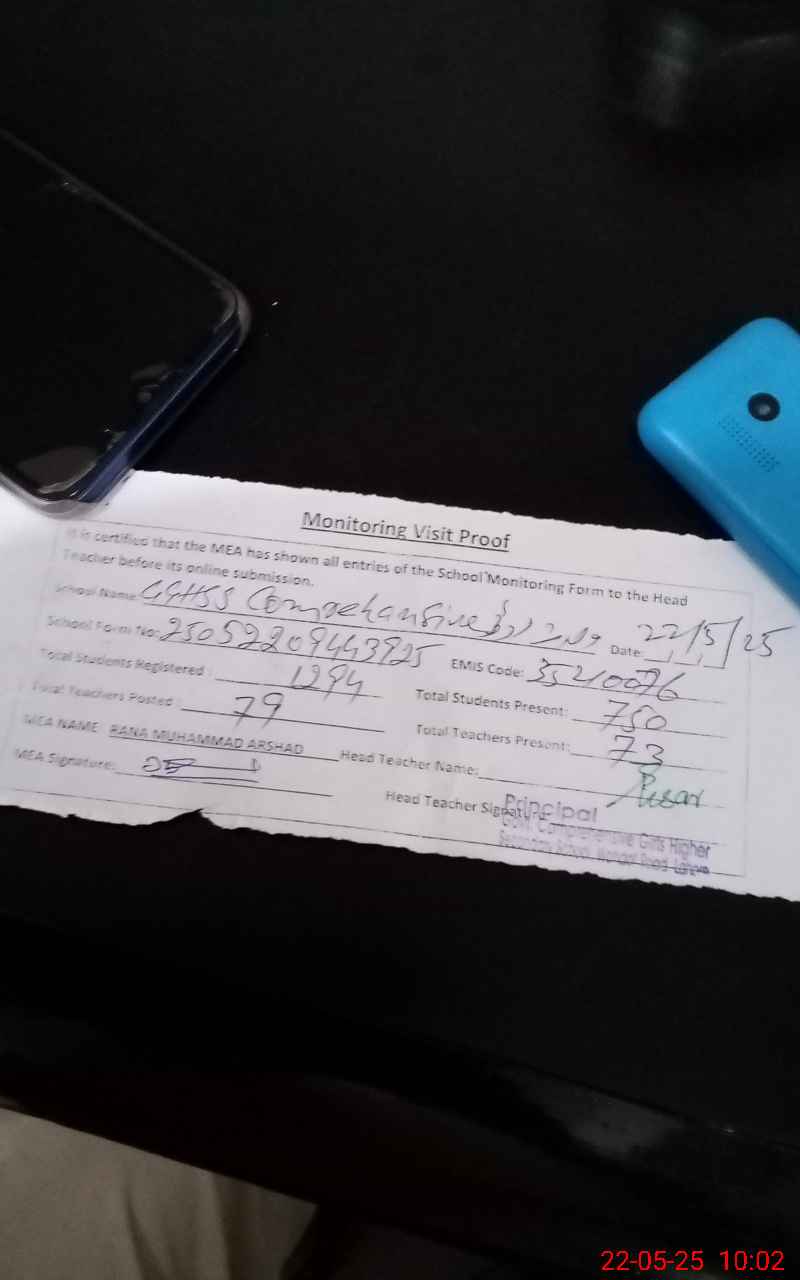 Monitoring Visit Proof
It is certified that the MEA has shown all entries of the School Monitoring Form to the Head
Teacher before its online submission.
School Name: GGHSS Comprehansive Date: 22/5/25
School Form No: 25052209443925 EMIS Code: 35210076
Total Students Registered : 1294 Total Students Present: 750
Total Teachers Posted : 79 Total Teachers Present: 73
MEA NAME RANA MUHAMMAD ARSHAD Head Teacher Name:
MEA Signature: Head Teacher Signature
Principal
Govt. Comprehensive Girls Higher
Secondary School, Road, Lahore
22-05-25 10:02